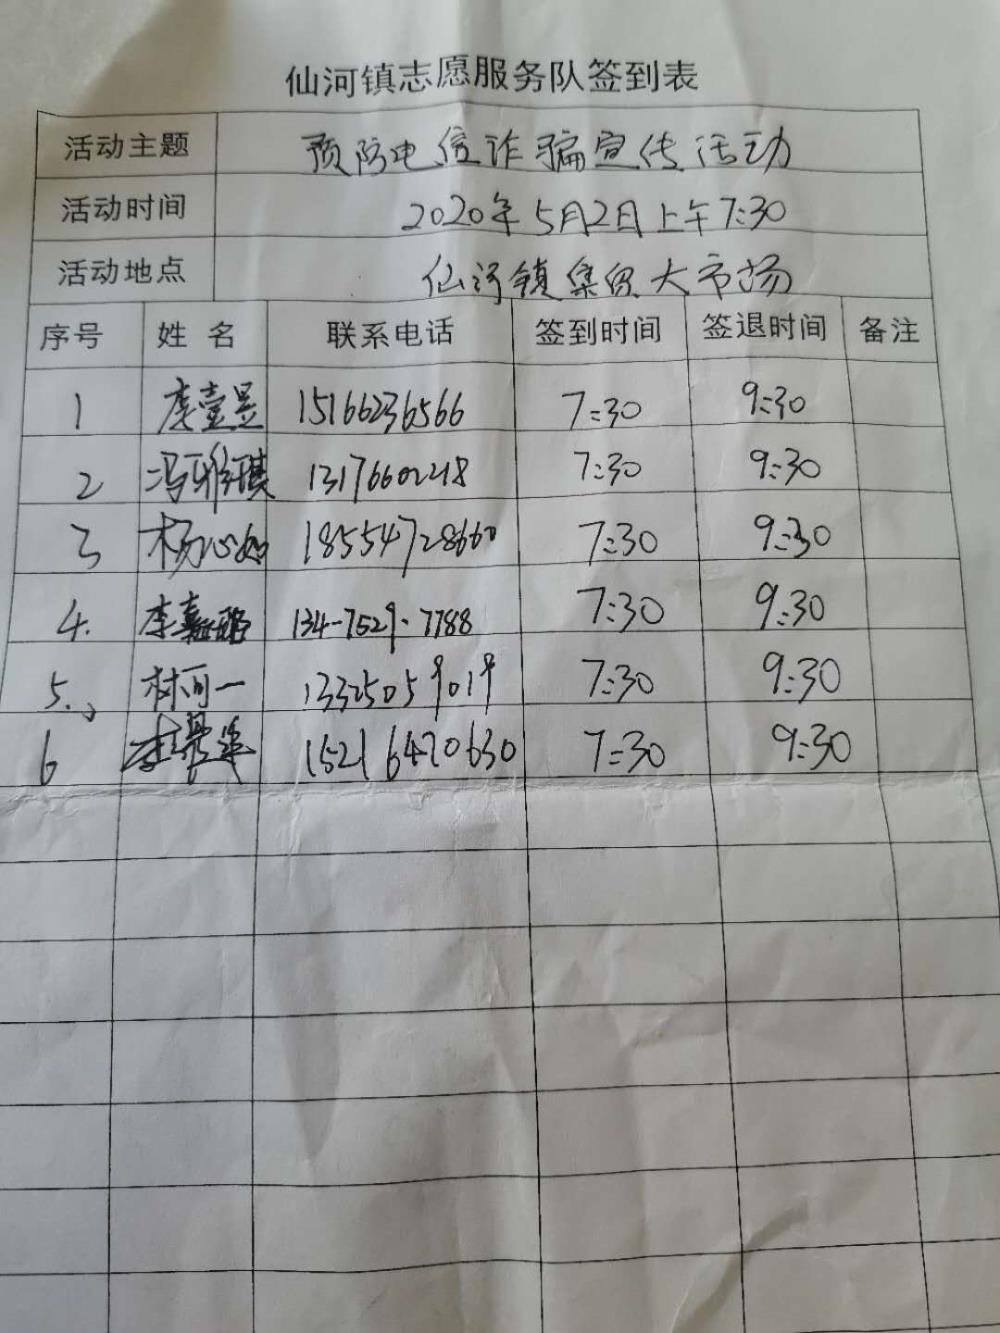 仙河镇志愿服务队签到表
活动主题 预防电信诈骗宣传活动
活动时间 2020年5月2日上午7:30
活动地点 仙河镇集贸大市场
序号 姓名 联系电话 签到时间 签退时间 备注
1 15166236566 7:30 9:30
2 冯雅琪 13176602218 7:30 9:30
3 杨心如 18554728660 7:30 9:30
4. 李嘉璐 134-7529-7788 7:30 9:30
5. 13325059019 7:30 9:30
6 15216470630 7:30 9:30